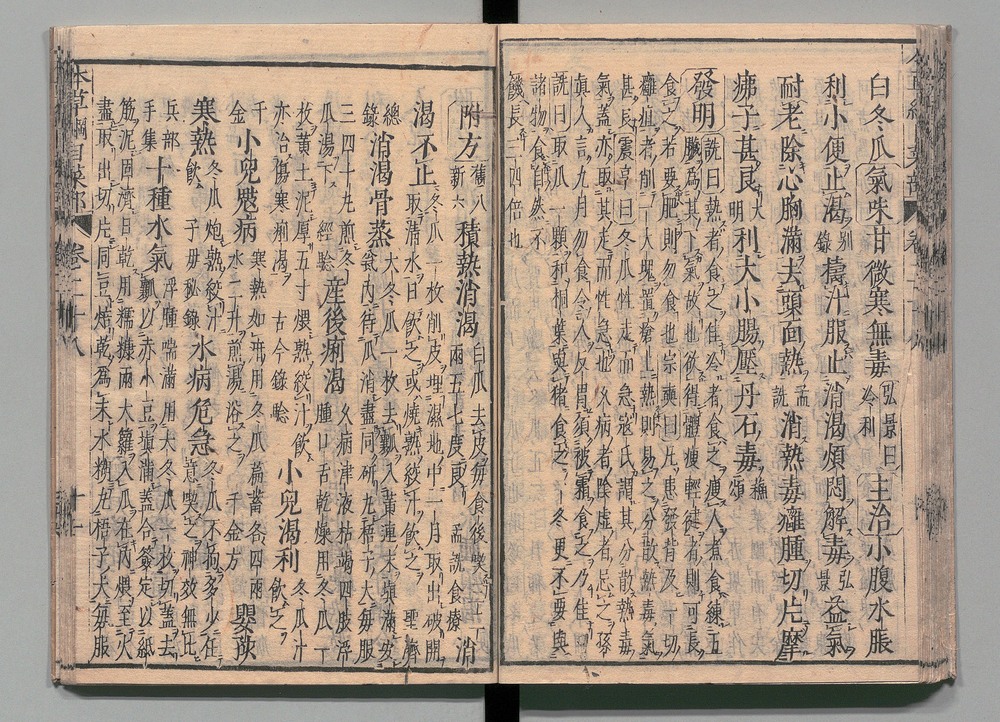 白冬瓜氣味甘微寒無毒弘景曰冷利主治小腹水脹
利小便止渴別錄擣汁服止消渴煩悶解毒弘景益氣
耐老除心胸滿去頭面熱孟詵消熱毒癰腫切片摩
疿子甚良大明利大小腸壓丹石毒蘇頌
發明詵曰熱者食之佳冷者食之瘦人煮食練五
臟爲其下氣故也欲得體瘦輕健者則可長
食之若要肥則勿食也宗奭曰凡患發背及一切
癰疽者削一大塊置瘡上熱則易之分散熱毒氣
甚良震亨曰冬瓜性走而急寇氏謂其分散熱毒
氣蓋亦取其走而性急也久病者陰虛者忌之孫
真人言九月勿食令人反胃須被霜食之乃佳
詵曰取瓜一顆和桐葉與猪食之一冬更不要與
諸物食自然不
饑長三四倍也
附方舊八新六積熱消渴白瓜去皮每食後喫三二兩五七度良孟詵食療消
渴不止冬瓜一枚削皮埋濕地中一月取出破開取清水日飲之或燒熟絞汁飲之聖濟
總錄消渴骨蒸大冬瓜一枚去瓤入黄連末填滿安甕內待瓜消盡同研丸梧子大每服
三四十丸煎冬瓜湯下經驗産後痢渴久病津液枯竭四肢浮腫口舌乾燥用冬瓜一
枚黄土泥厚五寸煨熟絞汁飲
亦治傷寒痢渴古今錄驗小兒渴利冬瓜汁飲之
千金小兒鬾病寒熱如疳用冬瓜萹蓄各四兩水二升煎湯浴之千金方嬰孩
寒熱冬瓜炮熟絞汁飲子母秘錄水病危急冬瓜不拘多少任意喫之神效無比
兵部手集十種水氣浮腫喘滿用大冬瓜一枚切蓋去瓤以赤小豆填滿蓋合簽定以紙
筋泥固濟日乾用糯糠兩大籮入瓜在內煨至火
盡取出切片同豆焙乾爲末水糊丸梧子大每服
本草綱目菜部
卷二十八